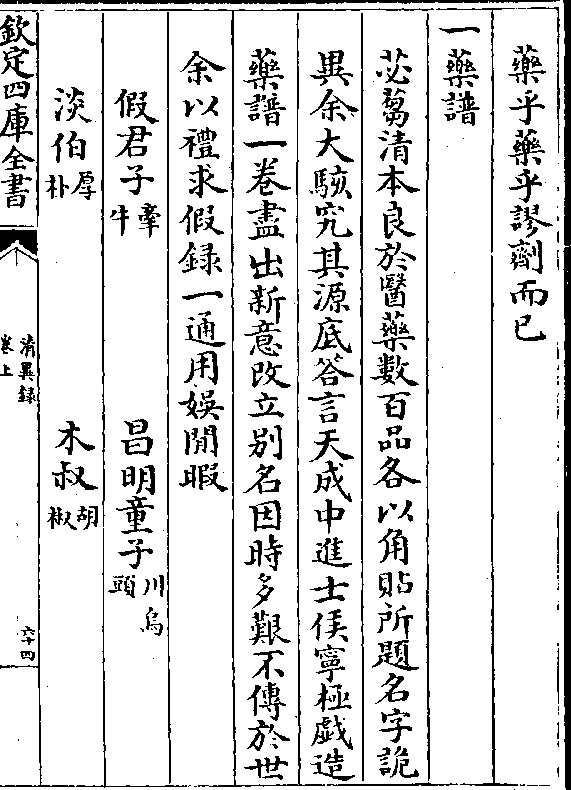 藥乎藥乎謬劑而已
一藥譜
苾蒭清本良於醫藥數百品各以角貼所題名字詭
異余大駭究其源底答言天成中進士侯寧極戲造
藥譜一卷盡出新意改立別名因時多艱不傳於世
余以禮求假録一通用娛閒暇
假君子牽牛 昌明童子川烏頭
淡伯厚朴 木叔胡椒
欽定四庫全書 清異録卷上 六十四